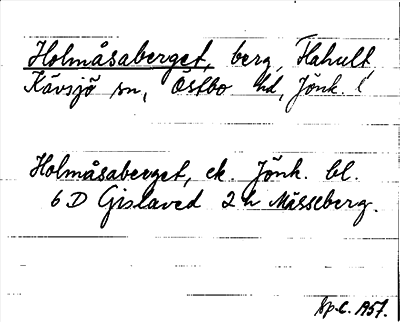 Holmåsaberget, berg, Flahult,
Kävsjö sn, Östbo hd, Jönk. l
Holmåsaberget, ek. Jönk. bl.
6 D Gislaved 2 h Mässeberg.
Sp.l. A57.